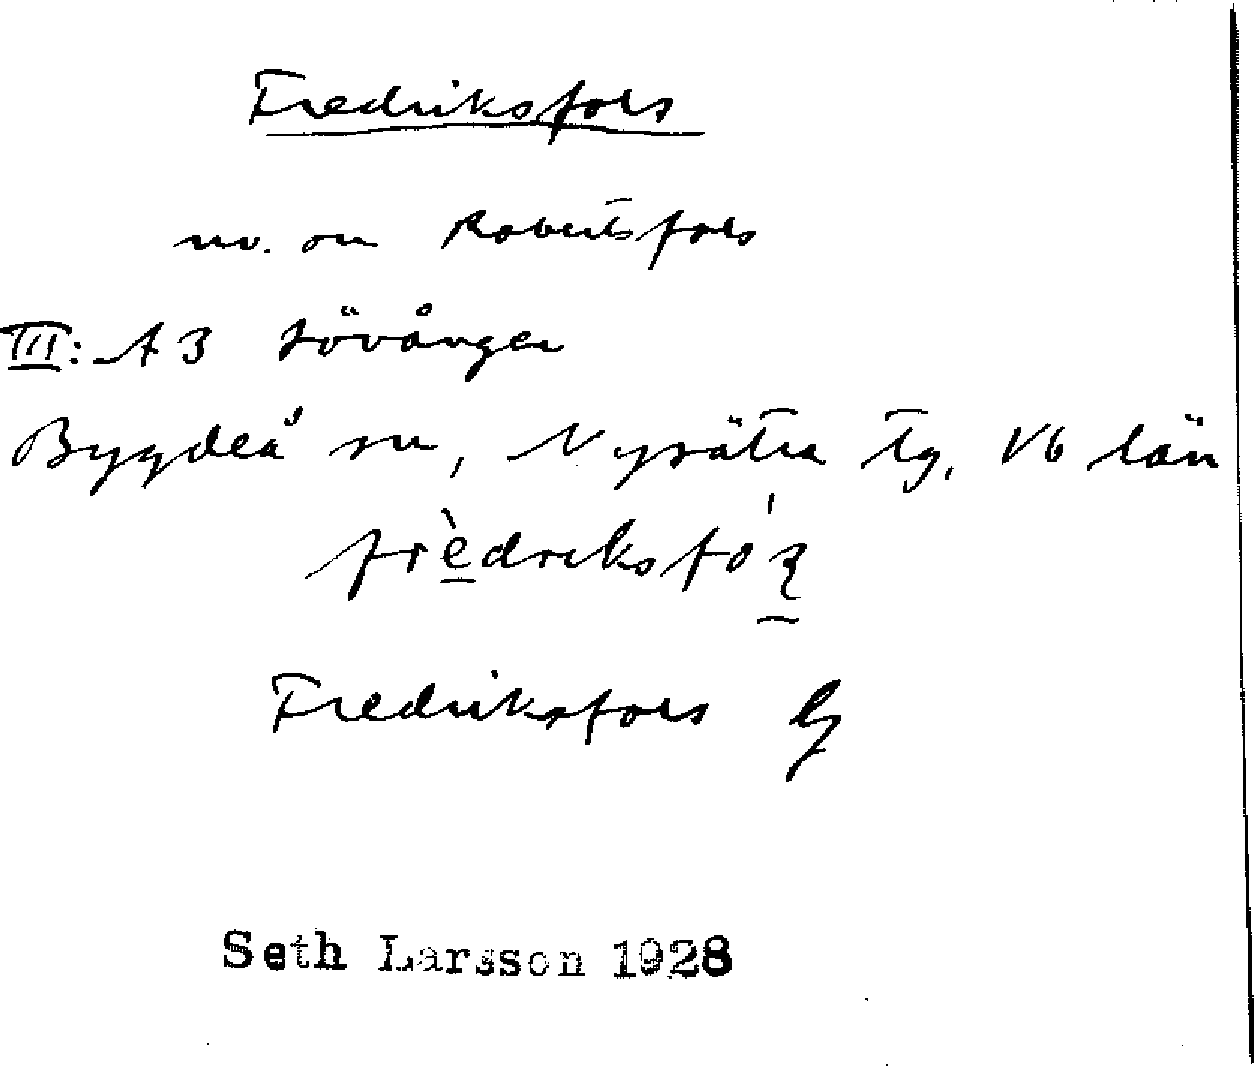 Fredriksfors
nv. om Robertsfors
III: A 3 Lövånger
Bygdeå sn, Nysätra tg, Vb län
frèdriksfo
Fredriksfors
Seth Larsson 1928